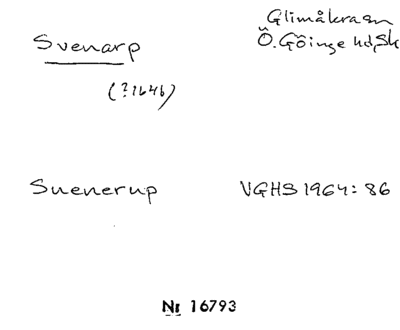 Svenarp
Glimåkra sn
Ö. Göinge hd, Sk
(?1646)
Suenerup
VGHS 1964: 86
Nr 16793